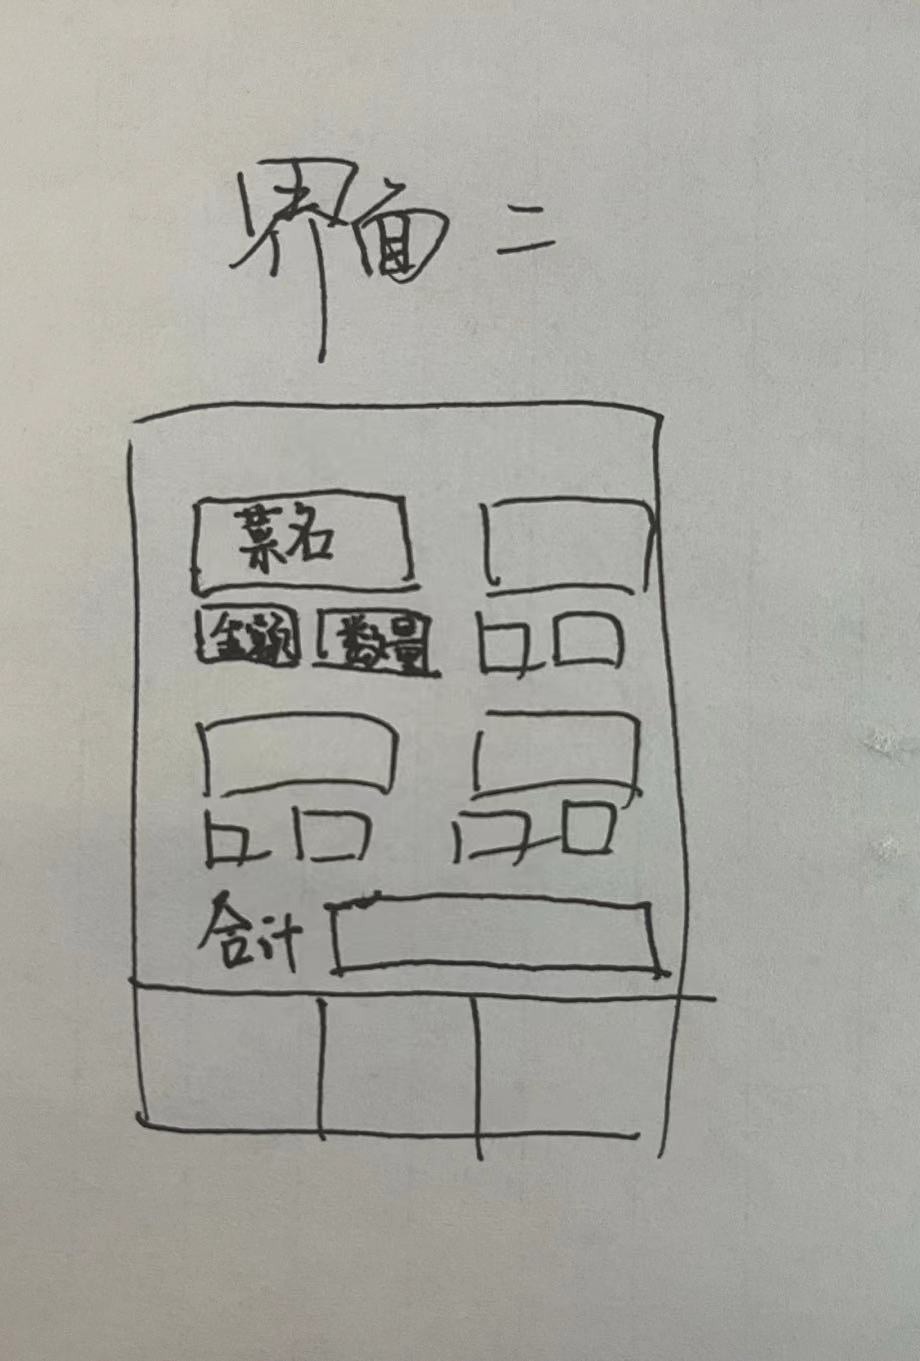 界面二
菜名
金额 数量
合计